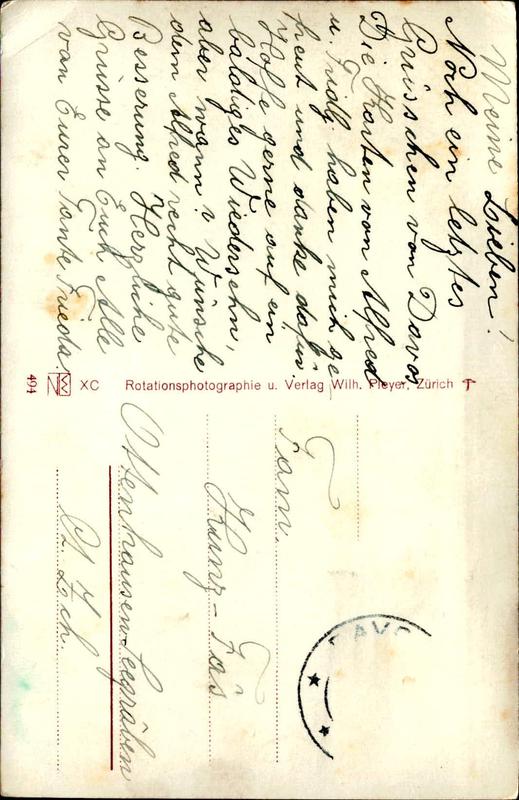 Meine Lieben!
Noch ein letztes
Grüsschen von Davos
Die Karten von Alfred
u. Fridg. haben mich ge
freut und danke dafür.
Hoffe gerne auf ein
baldiges Wiedersehn,
aber wann? Wünsche
dem Alfred recht gute
Besserung. Herzliche
Grüsse an Euch Alle
von Eurer Tante Frieda.
494 XC Rotationsphotographie u. Verlag Wilh. Pleyer, Zürich
Fam.
Kunz-
Ottenhausen-Seegräben
Kt. Zch.